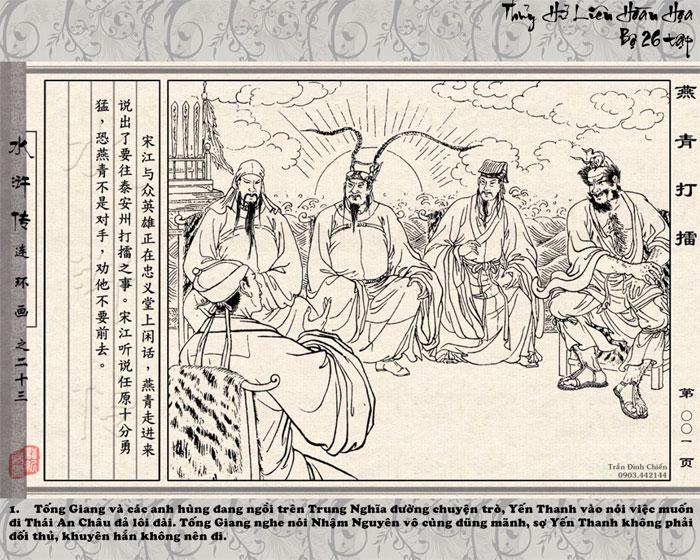 Thủy Hử Liên Hoàn Họa
Bộ 26 tập
燕青打擂
第〇〇一页
宋江与众英雄正在忠义堂上闲话，燕青走进来
说出了要往泰安州打擂之事。宋江听说任原十分勇
猛，恐燕青不是对手，劝他不要前去。
水浒传连环画之二十三
Trần Đình Chiến
0903.442144
1. Tống Giang và các anh hùng đang ngồi trên Trung Nghĩa đường chuyện trò, Yến Thanh vào nói việc muốn
đi Thái An Châu đả lôi đài. Tống Giang nghe nói Nhậm Nguyên vô cùng dũng mãnh, sợ Yến Thanh không phải
đối thủ, khuyên hắn không nên đi.